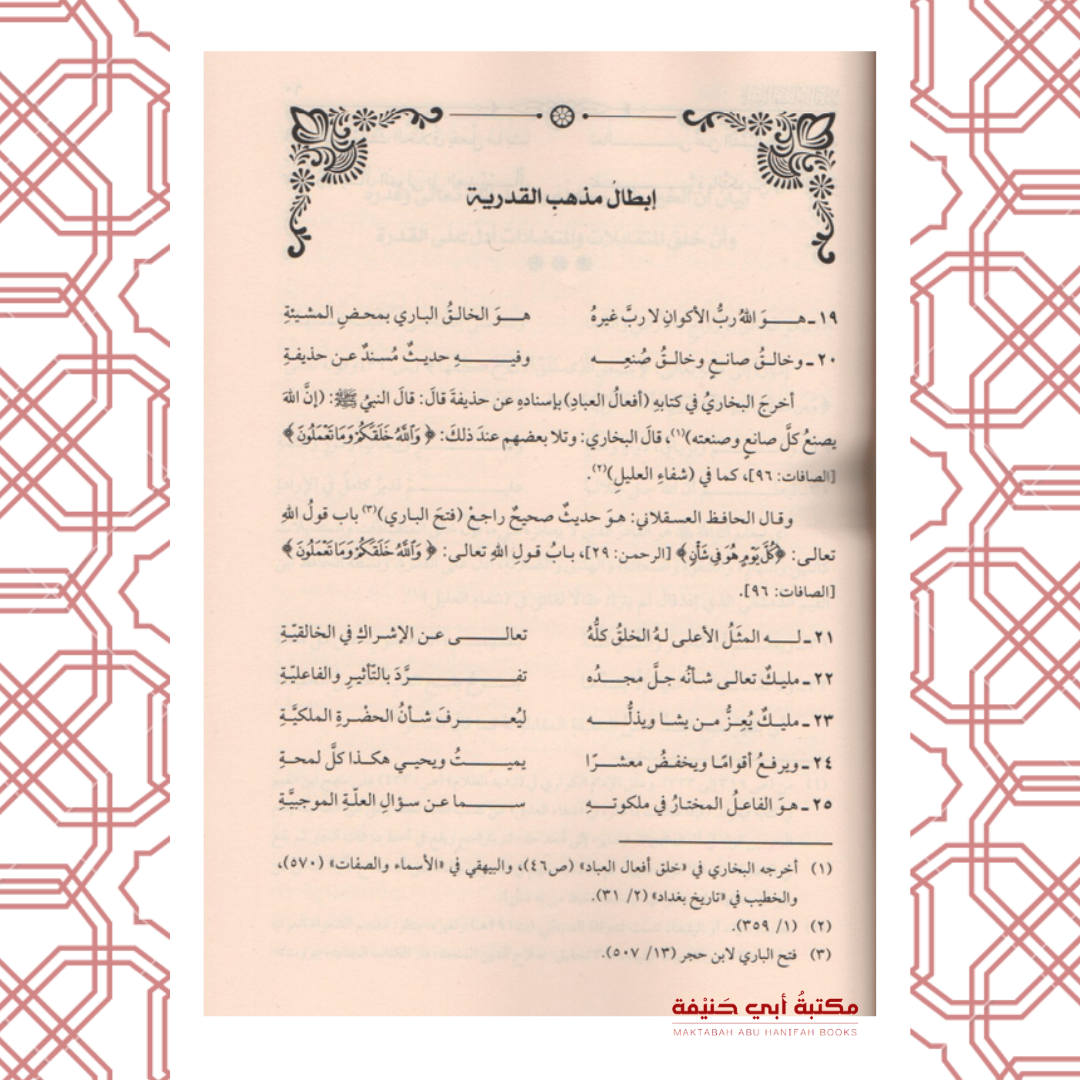 إبطال مذهب القدرية
١٩ ـ هـو اللهُ ربُّ الأكوانِ لا ربَّ غيرهُ هـوَ الخالقُ الباري بمحضِ المشيئةِ
٢٠ ـ وخالقُ صانعٍ وخالقُ صُنعِهِ وفيهِ حديثٌ مُسندٌ عن حذيفةِ
أخرجَ البخاريُّ في كتابهِ (أفعالُ العبادِ) بإسنادهِ عن حذيفةَ قالَ: قالَ النبيُّ ﷺ: (إنَّ اللهَ
يصنعُ كلَّ صانعٍ وصنعته)(١)، قالَ البخاري: وتلا بعضهم عندَ ذلكَ: ﴿وَٱللَّهُ خَلَقَكُمْ وَمَا تَعْمَلُونَ﴾
[الصافات: ٩٦]، كما في (شفاءِ العليلِ)(٢).
وقال الحافظ العسقلاني: هوَ حديثٌ صحيحٌ راجعْ (فتحَ الباري)(٣) باب قولُ اللهِ
تعالى: ﴿كُلَّ يَوْمٍ هُوَ فِي شَأْنٍ﴾ [الرحمن: ٢٩]، بابُ قولِ اللهِ تعالى: ﴿وَٱللَّهُ خَلَقَكُمْ وَمَا تَعْمَلُونَ﴾
[الصافات: ٩٦].
٢١ ـ لـه المثَلُ الأعلى لهُ الخلقُ كلُّهُ تعالى عن الإشراكِ في الخالقيّةِ
٢٢ ـ مليكٌ تعالى شأنُه جلَّ مجدُه تفرَّدَ بالتّأثيرِ والفاعليّةِ
٢٣ ـ مليكٌ يُعِزُّ من يشا ويذلُّه ليُعرَفَ شأنُ الحضْرةِ الملكيَّةِ
٢٤ ـ ويرفعُ أقوامًا ويخفضُ معشرًا يميتُ ويحيي هكذا كلَّ لمحةِ
٢٥ ـ هوَ الفاعلُ المختارُ في ملكوتهِ سما عن سؤالِ العلّةِ الموجبيَّةِ
(١) أخرجه البخاري في «خلق أفعال العباد» (ص٤٦)، والبيهقي في «الأسماء والصفات» (٥٧٠)،
والخطيب في «تاريخ بغداد» (٢/ ٣١).
(٢) (١/ ٣٥٩).
(٣) فتح الباري لابن حجر (١٣/ ٥٠٧).
مكتبةُ أبي حَنيْفة
MAKTABAH ABU HANIFAH BOOKS